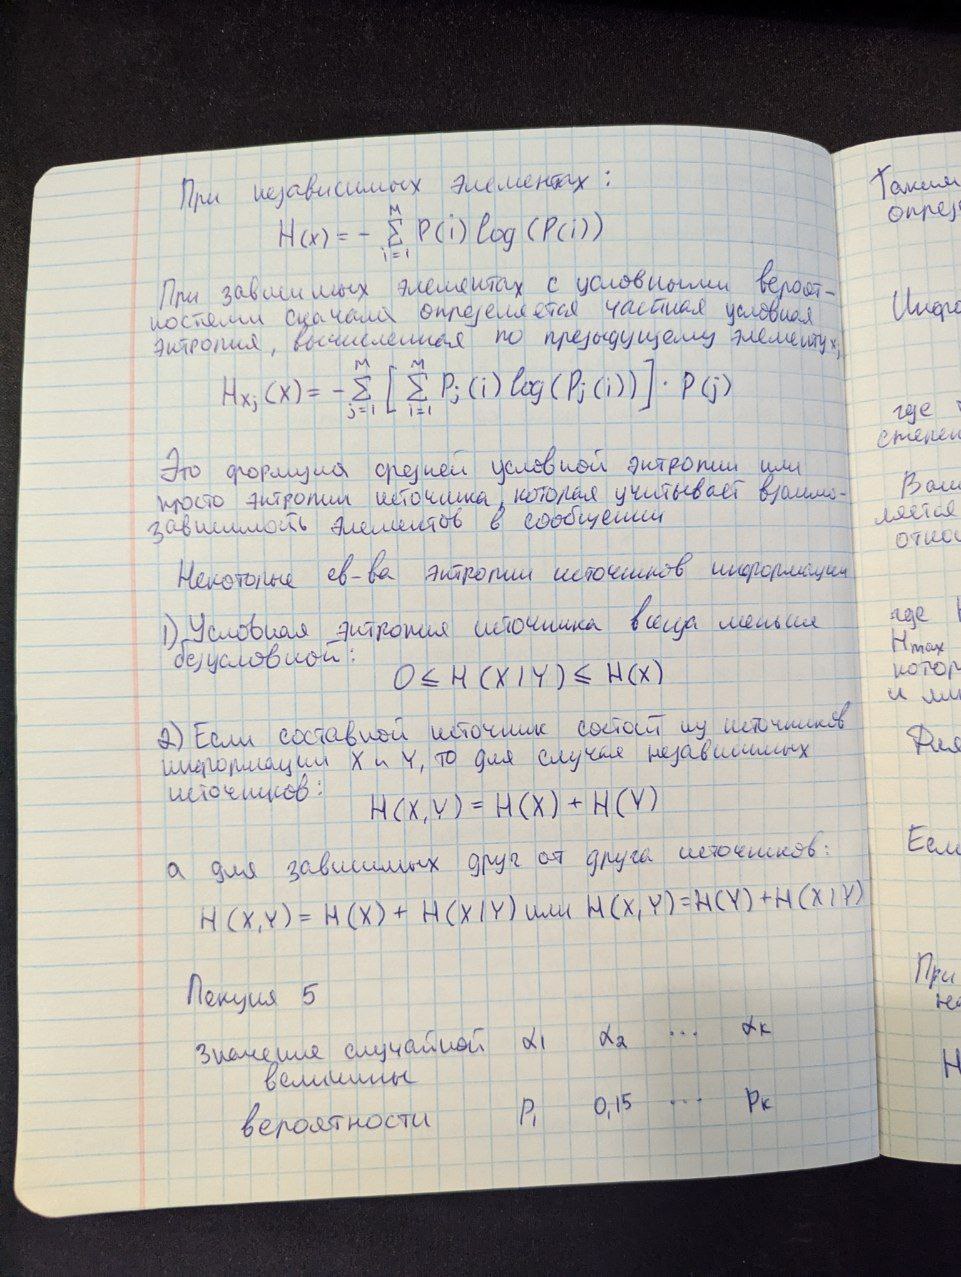 При независимых элементах:
H(x) = - M Σ i=1 P(i) log (P(i))
При зависимых элементах с условными вероят-
ностями сначала определяется частная условная
энтропия, вычисленная по предыдущему элементу xj
Hxj (X) = - M Σ j=1 [ M Σ i=1 Pj (i) log (Pj (i)) ] · P(j)
Это формула средней условной энтропии или
просто энтропии источника, которая учитывает взаимо-
зависимость элементов в сообщении
Некоторые св-ва энтропии источников информации
1) Условная энтропия источника всегда меньше
безусловной:
0 ≤ H (X/Y) ≤ H(X)
2) Если составной источник состоит из источников
информации X и Y, то для случая независимых
источников:
H(X,Y) = H(X) + H(Y)
а для зависимых друг от друга источников:
H(X,Y) = H(X) + H(X/Y) или H(X,Y) = H(Y) + H(X/Y)
Лекция 5
Значение случайной α1 α2 ... αк
величины
вероятности P1 0,15 ... Pк
Таким
опред
Инфо
где
степен
ляется
где H
Hmax
котор
и
Если
При
H